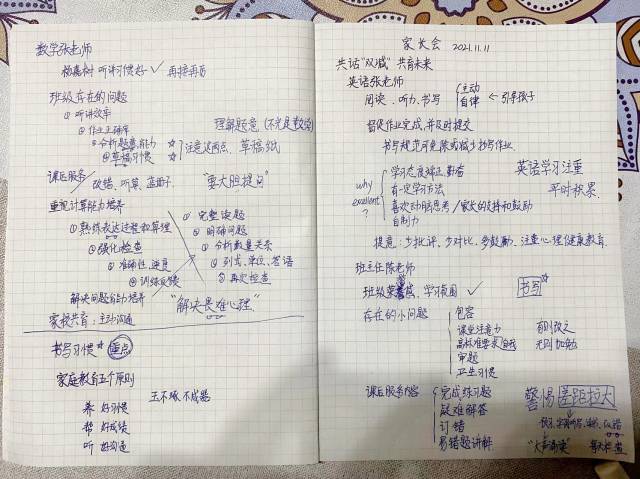 数学张老师
杨嘉树 听讲习惯好 ✓ 再接再厉
班级存在的问题
① 听讲效率
② 作业正确率
③ 分析题意能力
④ 草稿习惯
☆ 注意这两点、草稿纸
理解题意(不光是数学)
课后服务
改错、听算、
"要大胆提问"
重视计算能力培养
① 熟练表达过程和算理
② 强化检查
③ 准确性、速度
④ 训练反馈
① 完整读题
② 明确问题
③ 分析数量关系
④ 列式、单位、答语
⑤ 再次检查
解决问题能力培养
"解决畏难心理"
家校共育:主动沟通
书写习惯☆ 重点
家庭教育五个原则
养 好习惯
帮 好成绩
听 好沟通
玉不琢 不成器
家长会 2021.11.11
共话"双减" 共育未来
英语张老师
阅读、听力、书写
主动
自律
← 引导孩子
督促作业完成,并及时提交
书写规范可免除或减少抄写作业
why
excellent
?
学习态度端正 勤奋
有一定学习方法
喜欢动脑思考/家长的支持和鼓励
自制力
英语学习注重
平时积累
提意:少批评、少对比、多鼓励、注重心理健康教育
班主任陈老师
班级 学习氛围 ✓
书写☆
存在的小问题
包容
课堂注意力
高标准要求自我
审题
卫生习惯
有则改之
无则加勉
课后服务内容
完成练习题
疑难解答
订错
易错题讲解
警惕差距拉大
"大声朗读"